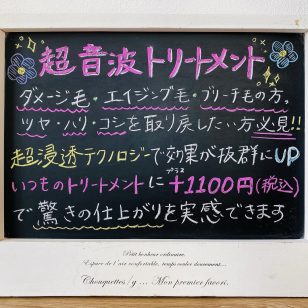 超音波トリートメント
ダメージ毛・エイジング毛・ブリーチ毛の方、
ツヤ・ハリ・コシを取り戻したい方必見!!
超浸透テクノロジーで効果が抜群にUP
いつものトリートメントに+1100円(税込)
プラス
で驚きの仕上がりを実感できます
Petit bonheur ordinaire.
Espace de l'air confortable, temps couler doucement....
Chouquettes/g.... Mon premier favori.